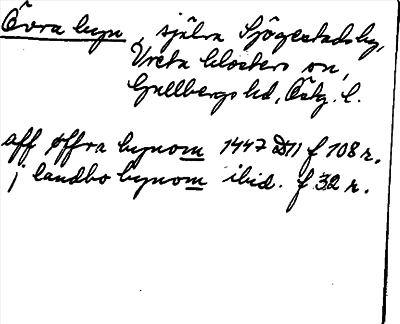 Övra byn, själva Sjögestadsby,
Vreta klosters sn,
Gullbergs hd, Östg. l.
aff øffra bynom 1447 D11 f 108 r.
j landbo bynom ibid. f 32 r.